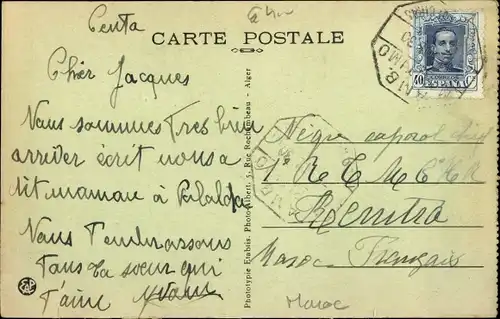 Ceuta
CARTE POSTALE
Cher Jacques
Nous sommes Tres bien
arriver écrit nous a
dit maman à
Nous Tembrassons
Tous ta soeur qui
T'aime Yvonne
Phototypie Etablis. Photo-Albert, 5, Rue Rochambeau - Alger
40 Cs
ESPAÑA
AMBº
Nègre caporal
1 R T M
Kenitra
Maroc Français
Maroc